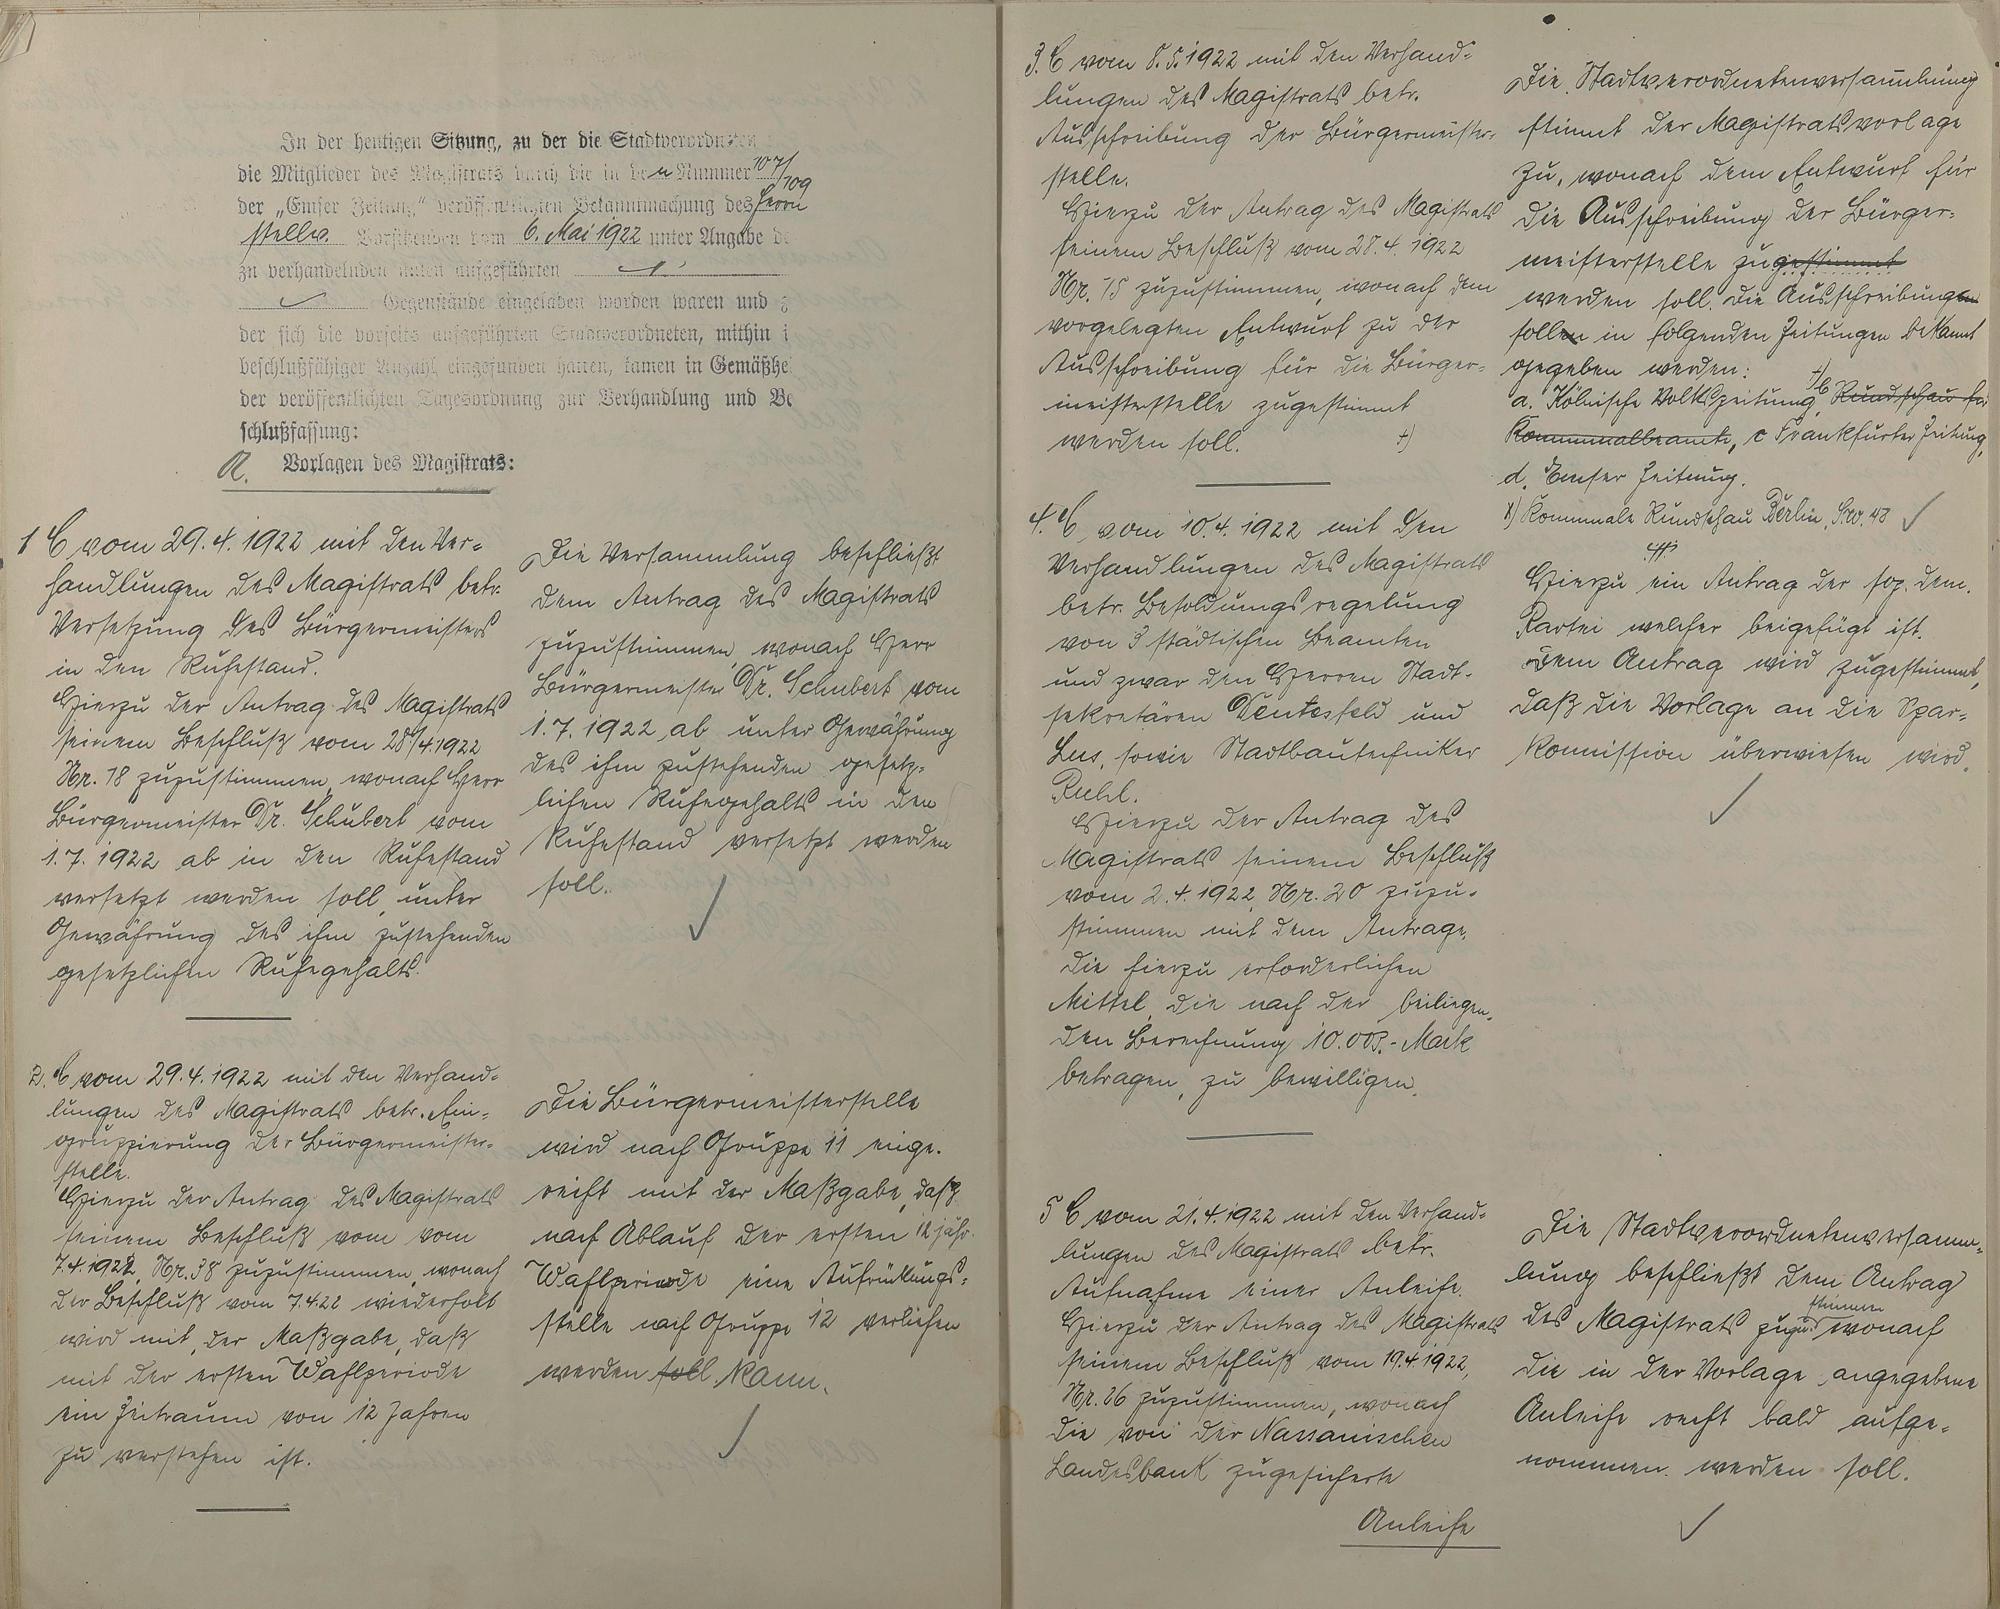 In der heutigen Sitzung, zu der die Stadtverordneten
die Mitglieder des Magistrats durch die in den Nummer 107/109
der „Emser Zeitung" veröffentlichten Bekanntmachung des Herrn
stellv. Vorsitzenden vom 6. Mai 1922 unter Angabe de
zu verhandelnden unten aufgeführten
Gegenstände eingeladen worden waren und
der sich die vorseits aufgeführten Stadtverordneten, mithin i
beschlußfähiger Anzahl eingefunden hatten, kamen in Gemäßhe
der veröffentlichten Tagesordnung zur Verhandlung und Be
schlußfassung:
A. Vorlagen des Magistrats:
1 C vom 29.4.1922 mit den Ver-
handlungen des Magistrats betr.
Versetzung des Bürgermeisters
in den Ruhestand.
Hierzu der Antrag des Magistrats
seinem Beschluß vom 28/4.1922
Nr. 18 zuzustimmen, wonach Herr
Bürgermeister Dr. Schubert vom
1.7.1922 ab in den Ruhestand
versetzt werden soll, unter
Gewährung des ihm zustehenden
gesetzlichen Ruhegehalts.
Die Versammlung beschließt
dem Antrag des Magistrats
zuzustimmen, wonach Herr
Bürgermeister Dr. Schubert vom
1.7.1922 ab unter Gewährung
des ihm zustehenden gesetz-
lichen Ruhegehalts in den
Ruhestand versetzt werden
soll.
2. C vom 29.4.1922 mit den Verhand-
lungen des Magistrats betr. Ein-
gruppierung der Bürgermeister-
stelle.
Hierzu der Antrag des Magistrats
seinem Beschluß vom vom
7.4.1922, Nr. 38 zuzustimmen, wonach
der Beschluß vom 7.4.22 wiederholt
wird mit der Maßgabe, daß
mit der ersten Wahlperiode
ein Zeitraum von 12 Jahren
zu verstehen ist.
Die Bürgermeisterstelle
wird nach Gruppe 11 einge-
reiht mit der Maßgabe, daß
nach Ablauf der ersten 12 jähr.
Wahlperiode eine Aufrückungs-
stelle nach Gruppe 12 verliehen
werden soll kann.
3. C vom 8.5.1922 mit den Verhand-
lungen des Magistrats betr.
Ausschreibung der Bürgermeister-
stelle.
Hierzu der Antrag des Magistrats
seinem Beschluß vom 28.4.1922
Nr. 15 zuzustimmen, wonach dem
vorgelegten Entwurf zu der
Ausschreibung für die Bürger-
meisterstelle zugestimmt
werden soll. +)
Die Stadtverordnetenversammlung
stimmt der Magistratsvorlage
zu, wonach dem Entwurf für
die Ausschreibung der Bürger-
meisterstelle zugestimmt
werden soll. Die Ausschreibungen
sollen in folgenden Zeitungen bekannt
gegeben werden:
a. Kölnische Volkszeitung, +) b Rundschau für
Kommunalbeamte, c Frankfurter Zeitung,
d. Emser Zeitung.
+) Kommunale Rundschau Berlin, S.W. 48
4. C vom 10.4.1922 mit den
Verhandlungen des Magistrats
betr. Besoldungsregelung
von 3 städtischen Beamten
und zwar den Herren Stadt-
sekretären und
sowie Stadtbautechniker
Ruhl.
Hierzu der Antrag des
Magistrats seinem Beschluß
vom 2.4.1922, Nr. 20 zuzu-
stimmen mit dem Antrage,
die hierzu erforderlichen
Mittel, die nach der beiliegen-
den Berechnung 10.003.- Mark
betragen, zu bewilligen.
Hierzu ein Antrag der soz. dem.
Partei welcher beigefügt ist.
Dem Antrag wird zugestimmt,
daß die Vorlage an die Spar-
kommission überwiesen wird.
5 C vom 21.4.1922 mit den Verhand-
lungen des Magistrats betr.
Aufnahme einer Anleihe.
Hierzu der Antrag des Magistrats
seinem Beschluß vom 19.4.1922,
Nr. 26 zuzustimmen, wonach
die von der Nassauischen
Landesbank zugesicherte
Anleihe
Die Stadtverordnetenversamm-
lung beschließt dem Antrag
des Magistrats zuzustimmen wonach
die in der Vorlage angegebene
Anleihe recht bald aufge-
nommen werden soll.